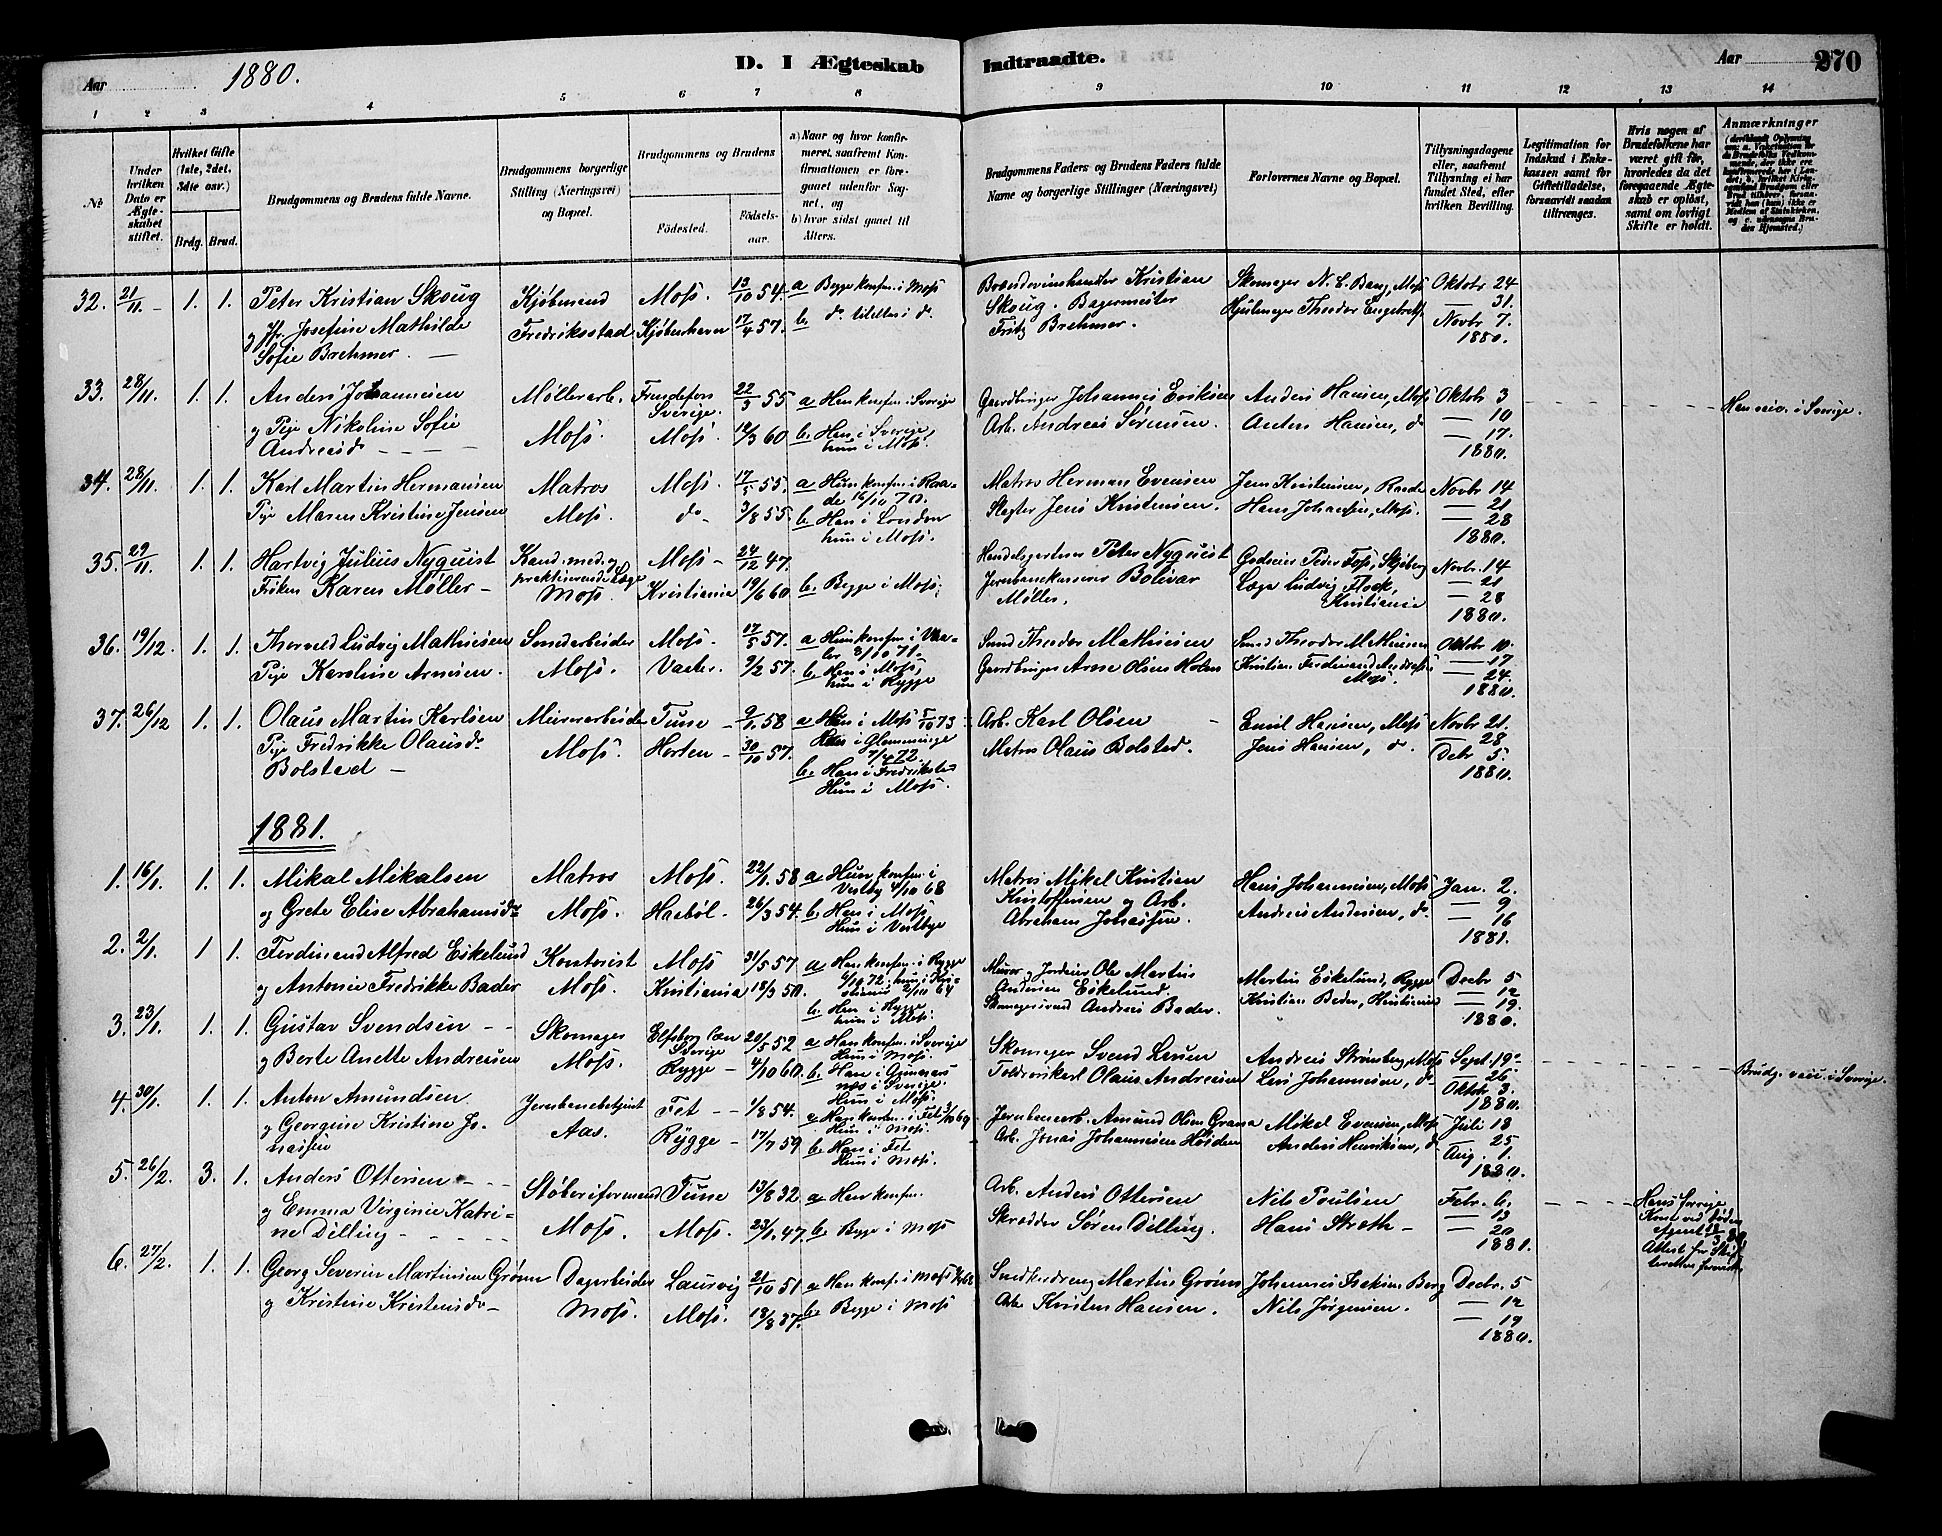 Aar 1880.
D. I Ægteskab Indtraadte.
Aar 270
1 2 3 4 5 6 7 8 9 10 11 12 13 14
No
Under hvilken Dato er Ægteskabet stiftet.
Hvilket Gifte (1ste, 2det, 3die osv.)
Brdg. Brud.
Brudgommens og Brudens fulde Navne.
Brudgommens borgerlige Stilling (Næringsvei) og Bopæl.
Brudgommens og Brudens
Fødested. Fødselsaar.
a) Naar og hvor konfirmeret, saafremt Konfirmationen er foregaaet udenfor Sognet, og
b) hvor sidst gaaet til Alters.
Brudgommens Faders og Brudens Faders fulde Navne og borgerlige Stillinger (Næringsvei)
Forlovernes Navne og Bopæl.
Tillysningsdagene eller, saafremt Tillysning ei har fundet Sted, efter hvilken Bevilling.
Legitimation for Indskud i Enkekassen samt for Giftetilladelse, forsaavidt saadan tiltrænges.
Hvis nogen af Brudefolkene har været gift før, hvorledes da det foregaaende Ægteskab er opløst, samt om lovligt Skifte er holdt.
Anmærkninger
32. 21/11 1. 1. Peter Kristian Skoug Kjøbmand Moss. 13/10 54. a Begge konfm. i Moss Brændevinshandler Kristian Skomager N. C. Bang, Moss Oktobr 24
og Josefine Mathilde Fredriksstad Kjøbenhavn 17/4 57. b do. Skoug. Bagermester Hjulmager Theodor — 31.
Sofie Brehmer. Fritz Brehmer. Novbr 7.
1880.
33. 28/11. 1. 1. Anders Johannesen Møllerarb. Sverige. 22/3 55 a Han konfm. i Sverige Gaardbruger Johannes Eriksen Anders Hansen, Moss Oktobr 3 Han vac. i Sverige.
og Pige Nikoline Sofie Moss. Moss. 12/3 60. b. Han i Sverige, Arb. Andreas Sørensen Anton Hansen, do — 10
Andreasd. hun i Moss. — 17.
1880.
34. 28/11. 1. 1. Karl Martin Hermansen Matros Moss. 17/5 55. a Hun konfm. i Raade 16/10 70. Matros Herman Evensen Jens Kristensen, Raade Novbr 14
Pige Maren Kristine Jensen Moss. do 3/8 55. b. Han i London Slagter Jens Kristensen. Hans Johansen, Moss. — 21
hun i Moss. — 28
1880.
35. 29/11. 1. 1. Hartvig Julius Nyquist Kand. med. og Moss 24/12 47. Handelsgartner Peter Nyquist Godseier Peder Foss, Skjeberg Novbr. 14
Frøken Karen Møller praktiserende Læge Moss. Kristiania 19/6 60. b. Begge i Moss. Jernbanekasserer Bolivar Læge Ludvig Kristiania — 21
Møller. — 28
1880.
36. 19/12. 1. 1. Thorvald Ludvig Mathiesen Moss. 17/5 57. a Hun konfm. i Vaaler 8/10 71. Theodor Mathiesen Theodor Mathiesen Oktobr 10.
Pige Karoline Arnesen. Moss. Vaaler. 9/2 57. b. Han i Moss, Gaardbruger Arne Olsen Holen Kristian Ferdinand Moss. — 17
hun i Rygge — 24.
1880.
37. 26/12 1. 1. Olaus Martin Karlsen Murerarbeider Tune 9/1. 58 a Han i Moss 5/10 73 Arb. Karl Olsen Emil Hansen, Moss Novbr 21.
Pige Fredrikke Olausd. Moss. Horten 30/10 57. Hun i Glemminge 7/4 72. Matros Olaus Bolstad. Jens Hansen, do. — 28
Bolstad b. Han i Fredrikstad Debr 5.
Hun i Moss. 1880.
1881.
1. 16/1. 1. 1. Mikal Mikalsen Matros Moss. 22/1. 58 a Hun konfm. i Vestby 4/10 68 Matros Mikal Kristian Hans Johannesen, Moss Jan. 2.
og Grete Elise Abrahamsdr Moss. Haabøl. 26/3 54. b. Han i Moss Kristoffersen og Arb. Andreas Andersen, do. — 9
Hun i Vestby Abraham Johassen. — 16
1881.
2. 2/1. 1 1. Ferdinand Alfred Eskelund Kontorist Moss 31/5 57 a Han konfm. i Rygge Murer og Jordeier Ole Martin Martin Eskelund, Rygge Decbr 5
og Antonie Fredrikke Bader Moss. Kristiania 18/3 50. 6/10 72, hun i Kristiania 2/10 64 Andersen Eskelund. Kristian Bader, Kristiania — 12
b. Han i Rygge Skomagersvend Andreas Bader. — 19.
hun i Moss. 1880.
3. 23/1. 1. 1. Gustav Svendsen Skomager Elfsborg Læn Sverige 20/5 52 a Han konfm. i Sverige Skomager Svend Larsen Andreas Strømberg, Moss Sept. 19. Brudg. vacc. i Sverige.
og Berte Anette Andreasen Moss. Rygge 4/10 60. Hun i Moss. Olaus Andreasen Levi Johannesen, do — 26.
b. Han i Sverige. Oktobr 3.
Hun i Moss. 1880.
4. 30/1. 1. 1. Anton Amundsen Jernbanebetjent Fet 1/8 54. a Han konfm. i Fet 3/10 69 Jernbanearb. Amund Olsen Mikal Evensen, Moss Juli 18
og Georgine Kristine Jonassen Aas. Rygge 17/7 59 Hun i Moss. Arb. Jonas Johannesen Anders Henriksen, do — 25
b. Han i Fet Aug. 1.
Hun i Moss. 1880.
5. 26/2. 3. 1. Anders Ottersen Støberiformand Tune 13/8 32. a Han konfm. Arb. Anders Ottersen Nils Poulsen Febr. 6. Hans forrige Kone ved Døden
og Emma Virginie Katrine Dilling Moss. Moss. 23/1. 47. b Begge i Moss Skrædder Søren Dilling. Hans Stroth — 13
— 20 Attest fra Skifteretten
1881.
6. 27/2. 1. 1. Georg Severin Martinsen Grønn Dagarbeider Laurvig 21/10 51 a Han konfm. i Moss Martin Grønn Johannes Isaksen Berg Decbr. 5
og Kristine Kristensdr Moss. Moss. 18/8 37. b. Begge i Moss Arb. Kristen Hansen. Nils Jørgensen. — 12
— 19
1880.